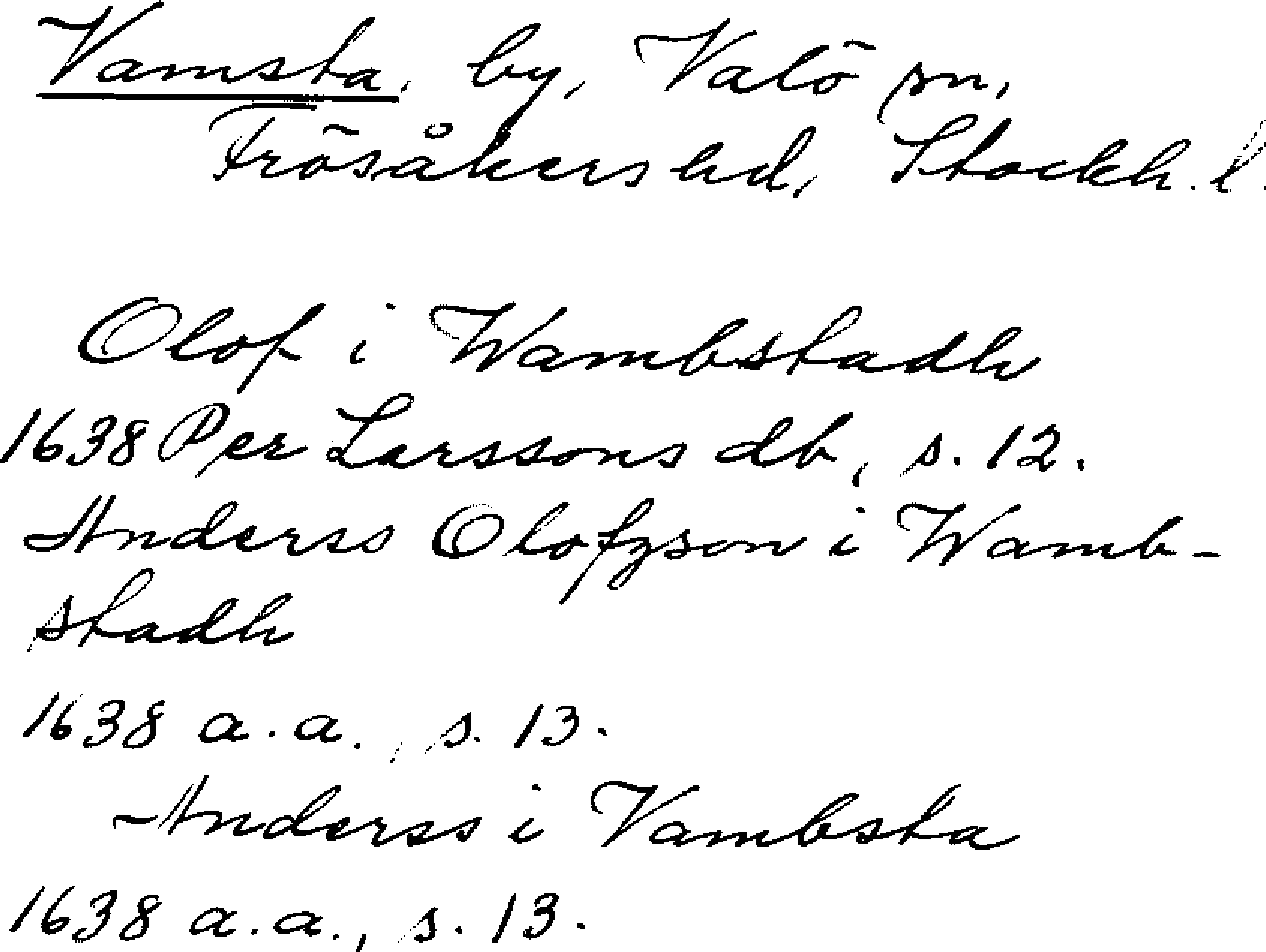 Vamsta, by, Valö sn,
Frösåkers hd, Stockh. l.
Olof i Wambstadh
1638 Per Larssons db, s. 12.
Anderss Olofzson i Wamb-
stadh
1638 a.a., s. 13.
Anderss i Vambsta
1638 a.a., s. 13.